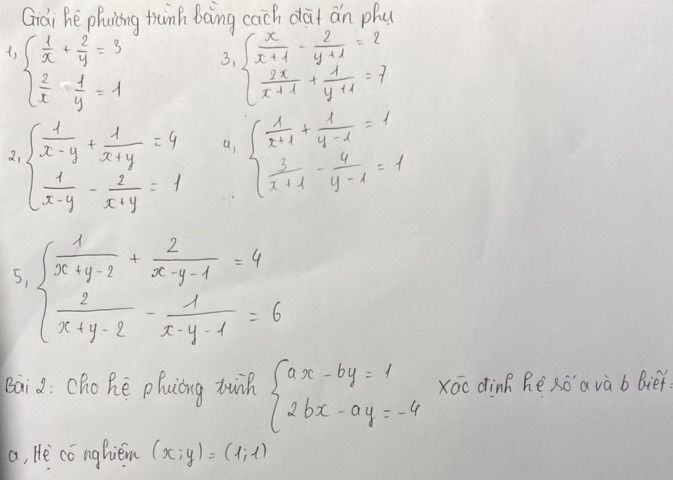 Giải hệ phương trình bằng cách đặt ẩn phụ
1, { 1/x + 2/y = 3
2/x - 1/y = 1
2, { 1/(x-y) + 1/(x+y) = 4
1/(x-y) - 2/(x+y) = 1
3, { x/(x+1) - 2/(y+1) = 2
2x/(x+1) + 1/(y+1) = 7
4, { 1/(x+1) + 1/(y-1) = 1
3/(x+1) - 4/(y-1) = 1
5, { 1/(x+y-2) + 2/(x-y-1) = 4
2/(x+y-2) - 1/(x-y-1) = 6
Bài 2: Cho hệ phương trình { ax - by = 1
2bx - ay = -4
xác định hệ số a và b biết:
a, Hệ có nghiệm (x;y) = (1;1)